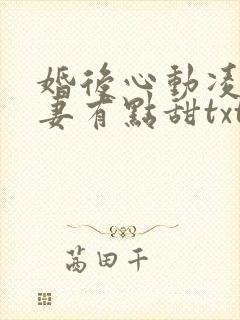 婚後心動凌
妻有點甜txt
茜田千